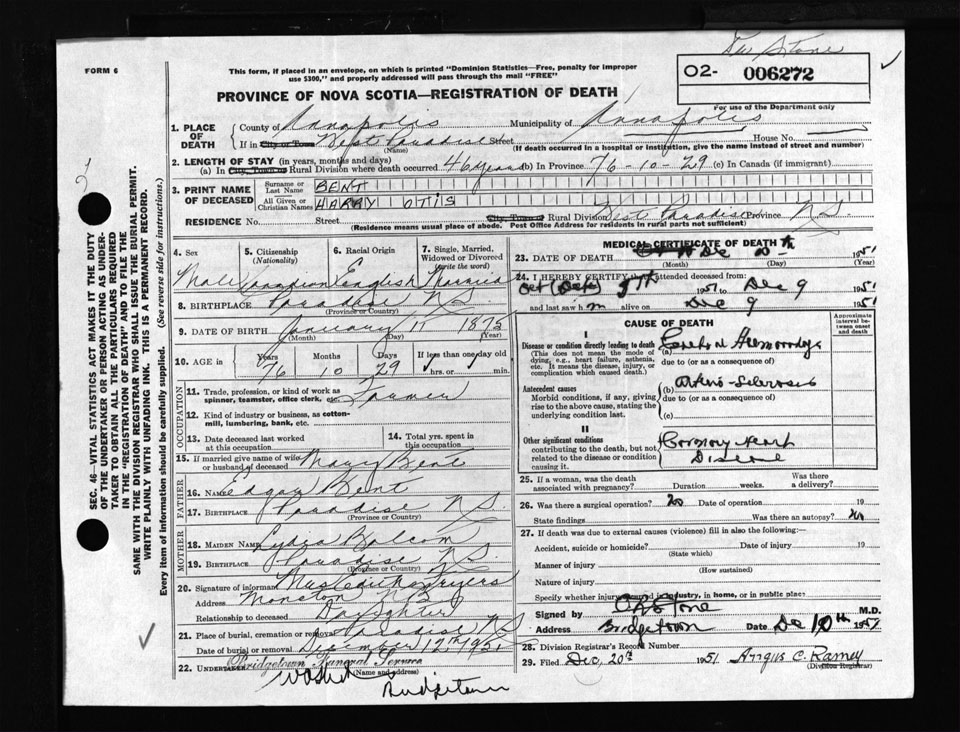 Dr Stone
FORM 6
This form, if placed in an envelope, on which is printed "Dominion Statistics—Free, penalty for improper
use $300," and properly addressed will pass through the mail "FREE"
02- 006272
For use of the Department only
PROVINCE OF NOVA SCOTIA—REGISTRATION OF DEATH
1. PLACE OF DEATH
County of Annapolis Municipality of Annapolis
If in City or Town West Paradise Street House No.
(Name) (If death occurred in a hospital or institution, give the name instead of street and number)
2. LENGTH OF STAY (in years, months and days)
(a) In City, Town or Rural Division where death occurred 46 years (b) In Province 76-10-29 (c) In Canada (if immigrant)
3. PRINT NAME OF DECEASED
Surname or Last Name BENT
All Given or Christian Names HARRY OTIS
RESIDENCE No. Street City, Town or Rural Division West Paradise Province N.S.
(Residence means usual place of abode. Post Office Address for residents in rural parts not sufficient)
4. Sex Male
5. Citizenship (Nationality) Canadian
6. Racial Origin English
7. Single, Married, Widowed or Divorced (write the word) Married
8. BIRTHPLACE Paradise N.S.
(Province or Country)
9. DATE OF BIRTH January 11 1875
(Month) (Day) (Year)
10. AGE in Years Months Days If less than one day old
76 10 29 hrs. or min.
OCCUPATION
11. Trade, profession, or kind of work as spinner, teamster, office clerk, etc. Farmer
12. Kind of industry or business, as cotton-mill, lumbering, bank, etc.
13. Date deceased last worked at this occupation
14. Total yrs. spent in this occupation
15. If married give name of wife or husband of deceased Mary Bent
FATHER
16. NAME Edgar Bent
17. BIRTHPLACE Paradise N.S.
(Province or Country)
MOTHER
18. MAIDEN NAME Lydia Balcom
19. BIRTHPLACE Paradise N.S.
(Province or Country)
20. Signature of informant Mrs Edith
Address Moncton N.B.
Relationship to deceased Daughter
21. Place of burial, cremation or removal Paradise N.S.
Date of burial or removal December 12th 1951
22. UNDERTAKER Bridgetown Funeral Service
(Name and address)
Bridgetown
MEDICAL CERTIFICATE OF DEATH
23. DATE OF DEATH Dec 10th 1951
(Month) (Day) (Year)
24. I HEREBY CERTIFY that I attended deceased from:
Oct 5th 1951 to Dec 9 1951
and last saw h m alive on Dec 9 1951
CAUSE OF DEATH
Approximate interval between onset and death
I
Disease or condition directly leading to death
(This does not mean the mode of dying, e.g., heart failure, asthenia, etc. It means the disease, injury, or complication which caused death.)
(a) Cerebral Hemorrhage
due to (or as a consequence of)
Antecedent causes
Morbid conditions, if any, giving rise to the above cause, stating the underlying condition last.
(b) Arterio-Sclerosis
due to (or as a consequence of)
(c)
II
Other significant conditions contributing to the death, but not related to the disease or condition causing it.
Coronary Heart
Disease
25. If a woman, was the death associated with pregnancy? Duration weeks. Was there a delivery?
26. Was there a surgical operation? no Date of operation 19
State findings Was there an autopsy? no
27. If death was due to external causes (violence) fill in also the following:—
Accident, suicide or homicide? Date of injury 19
(State which)
Manner of injury
(How sustained)
Nature of injury
Specify whether injury occurred in industry, in home, or in public place?
Signed by Stone M.D.
Address Bridgetown Date Dec 10th 1951
28. Division Registrar's Record Number
29. Filed Dec. 20th 1951 Angus C. Ramey
(Division Registrar)
SEC. 46—VITAL STATISTICS ACT MAKES IT THE DUTY
OF THE UNDERTAKER OR PERSON ACTING AS UNDER-
TAKER TO OBTAIN ALL THE PARTICULARS REQUIRED
IN THE "REGISTRATION OF DEATH" AND TO FILE THE
SAME WITH THE DIVISION REGISTRAR WHO SHALL ISSUE THE BURIAL PERMIT.
WRITE PLAINLY WITH UNFADING INK. THIS IS A PERMANENT RECORD.
Every item of information should be carefully supplied. (See reverse side for instructions.)